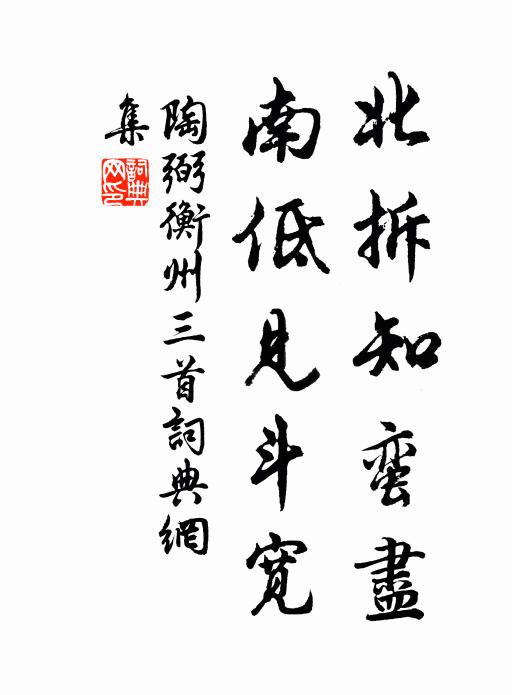 北拆知蛮盡
南低見斗寬
陶弼衡州三首詞典網
集
詞典網印